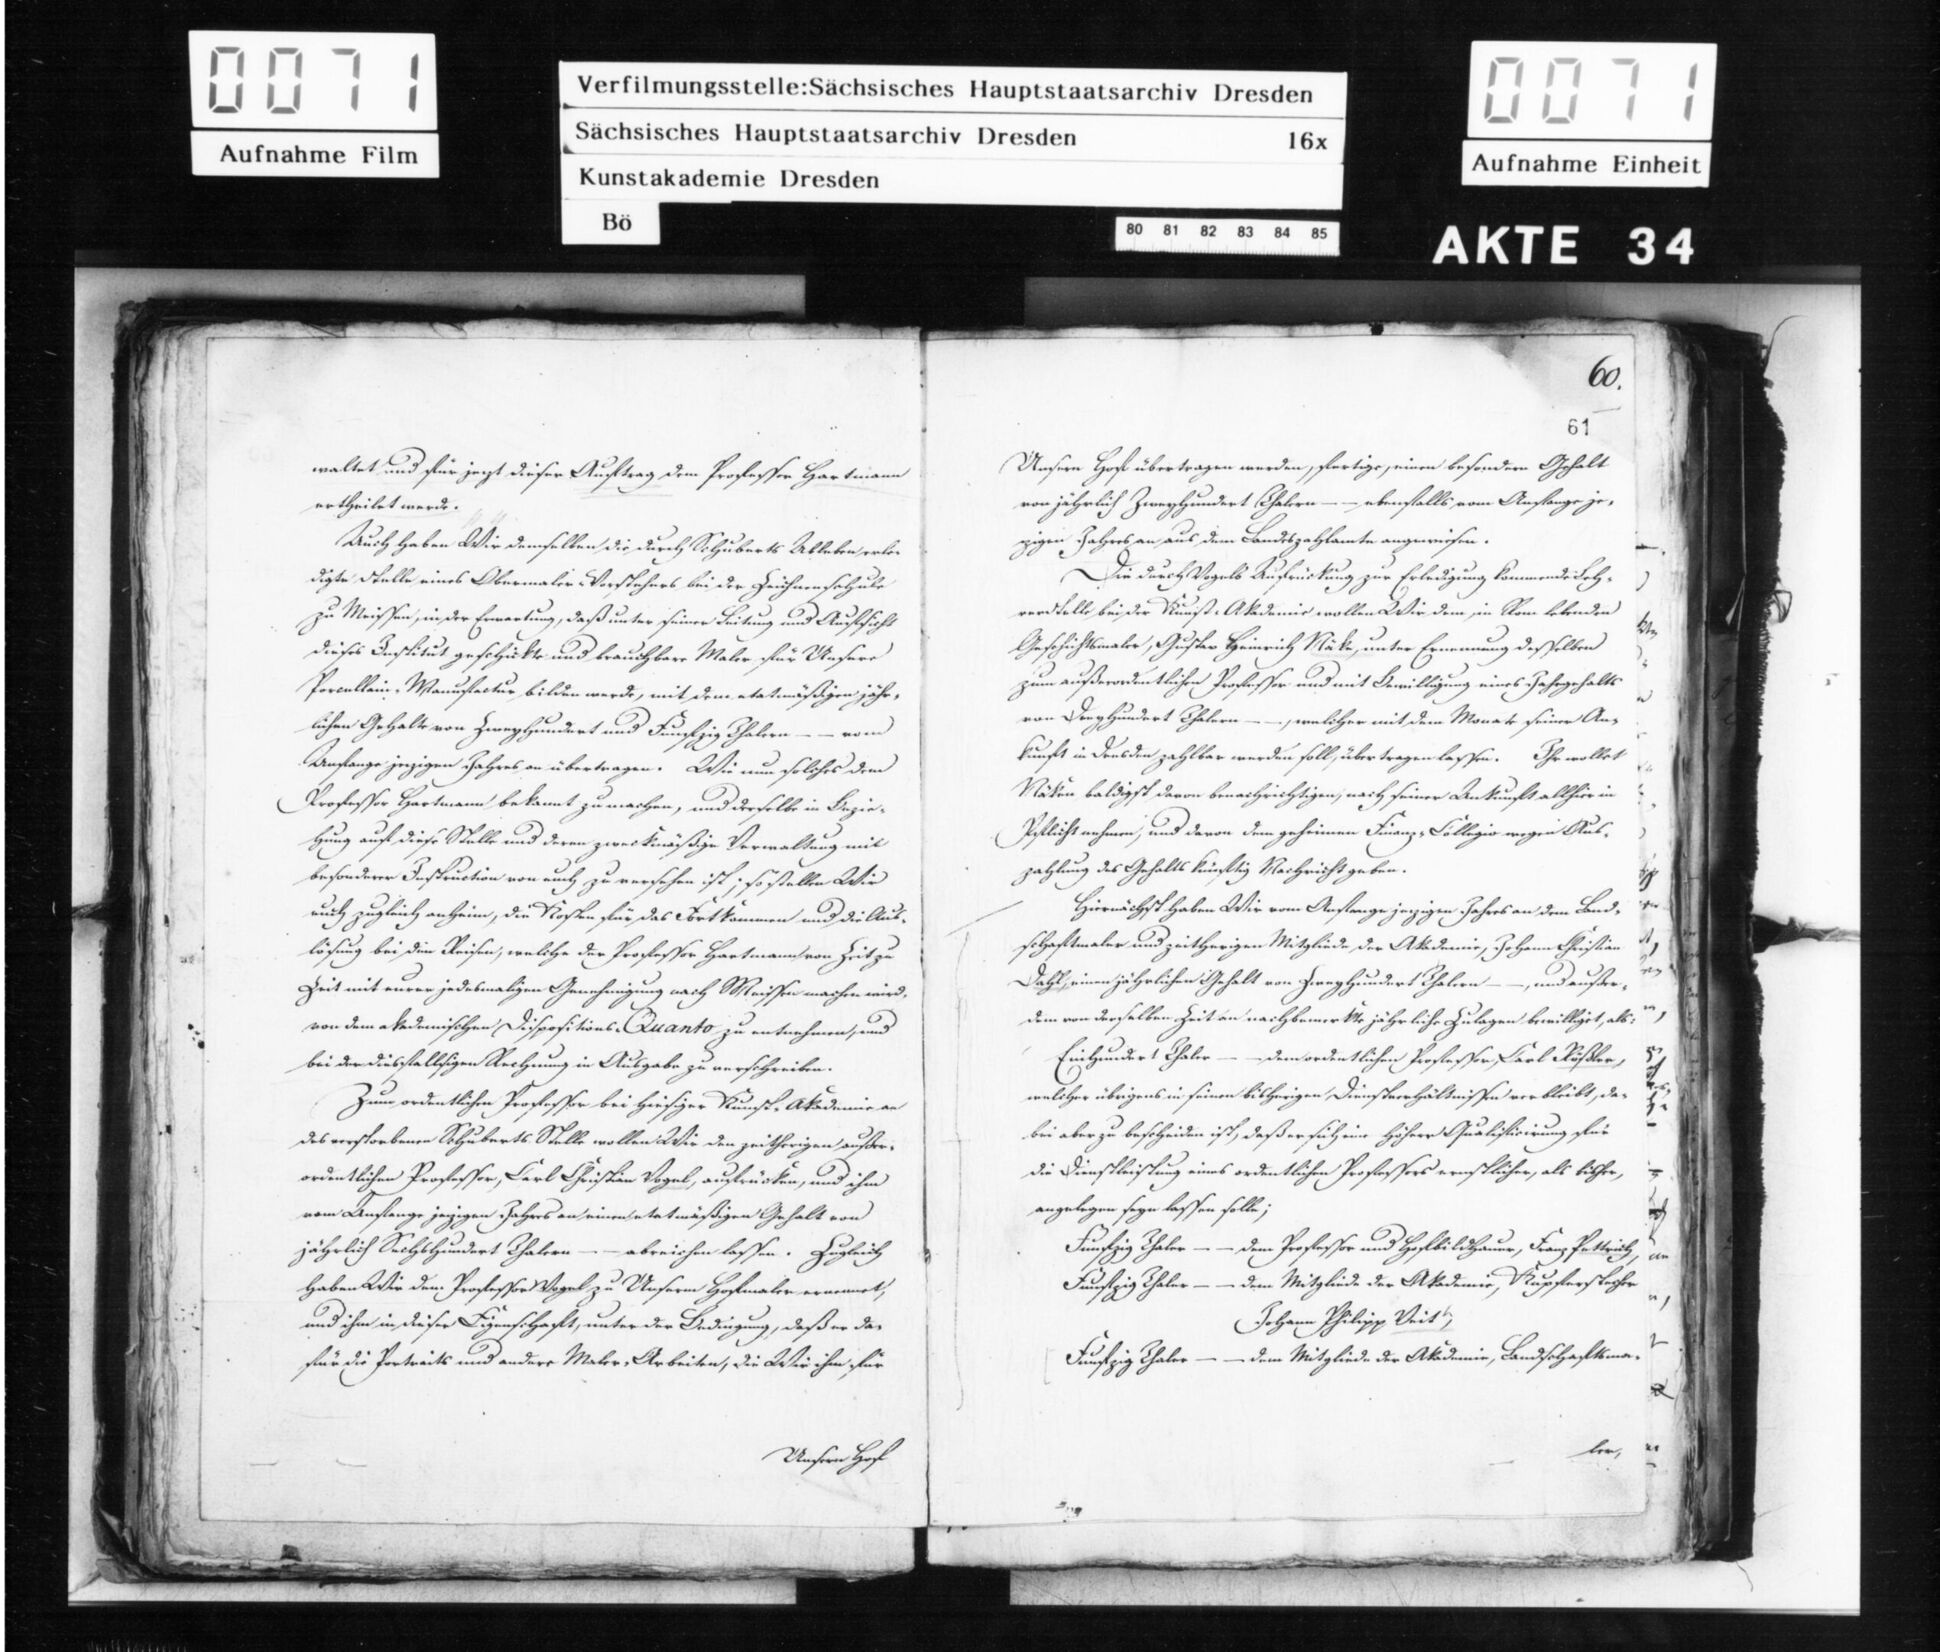 0071
Aufnahme Film
Verfilmungsstelle:Sächsisches Hauptstaatsarchiv Dresden
Sächsisches Hauptstaatsarchiv Dresden 16x
Kunstakademie Dresden
Bö
80 81 82 83 84 85
0071
Aufnahme Einheit
AKTE 34
waltet und für jezt dieser Auftrag dem Professor Hartmann
ertheilet werde.
Auch haben Wir demselben die durch Schuberts Ableben erle-
digte Stelle eines Obermaler-Vorstehers bei der Zeichnenschule
zu Meissen, in der Erwartung, daß unter seiner Leitung und Aufsicht
dieses Institut geschickte und brauchbare Maler für Unsere
Porcellain-Manufactur bilden werde, mit dem etatmäßigen jähr-
lichen Gehalte von Zweyhundert und Funfzig Thalern — — vom
Anfange jezigen Jahres an übertragen. Wie nun solches dem
Professor Hartmann bekannt zu machen, und derselbe in Bezie-
hung auf diese Stelle und deren zweckmäßige Verwaltung mit
besonderer Instruction von euch zu versehen ist; so stellen Wir
euch zugleich anheim, die Kosten für das Fortkommen und die Aus-
lösung bei den Reisen, welche der Professor Hartmann von Zeit zu
Zeit mit eurer jedesmaligen Genehmigung nach Meissen machen wird,
von dem akademischen Dispositions-Quanto zu entnehmen, und
bei der diesfallsigen Rechnung in Ausgabe zu verschreiben.
Zum ordentlichen Professor bei hiesiger Kunst-Akademie an
des verstorbenen Schuberts Stelle wollen Wir den zeitherigen außer-
ordentlichen Professor, Carl Christian Vogel, aufrücken, und ihm
vom Anfange jezigen Jahres an einen etatmäßigen Gehalt von
jährlich Sechshundert Thalern — — abreichen lassen. Zugleich
haben Wir den Professor Vogel zu Unserm Hofmaler ernennet,
und ihm in dieser Eigenschaft, unter der Bedingung, daß er da-
für die Portraits und andere Maler-Arbeiten, die Wir ihm für
Unsern Hof
60.
61
Unsern Hof übertragen werden, fertige, einen besondern Gehalt
von jährlich Zweyhundert Thalern — — ebenfalls vom Anfange je-
zigen Jahres an aus dem Landzahlamte angewiesen.
Die durch Vogels Aufrückung zur Erledigung kommende Leh-
rerstelle bei der Kunst-Akademie wollen Wir dem in Rom lebenden
Geschichtsmaler, Gustav Heinrich Näke, unter Ernennung desselben
zum außerordentlichen Professor und mit Bewilligung eines Jahrgehalts
von Dreyhundert Thalern — —, welcher mit dem Monate seiner An-
kunft in Dresden zahlbar werden soll, übertragen lassen. Ihr wollet
Näken baldigst davon benachrichtigen, nach seiner Ankunft allhier in
Pflicht nehmen, und davon dem geheimen Finanz-Collegio wegen Aus-
zahlung des Gehalts künftig Nachricht geben.
Hiernächst haben Wir vom Anfange jezigen Jahres an dem Land-
schaftmaler und zeitherigen Mitgliede der Akademie, Johann Christian
Dahl, einen jährlichen Gehalt von Zweyhundert Thalern — —, und außer-
dem von derselben Zeit an nachbemerkte jährliche Zulagen bewilliget, als:
Einhundert Thaler — — dem ordentlichen Professor, Carl Rößler,
welcher übrigens in seinen bisherigen Dienstverhältnissen verbleibt, da-
bei aber zu bescheiden ist, daß er sich eine höhere Qualificirung für
die Dienstleistung eines ordentlichen Professors ernstlicher, als bisher,
angelegen seyn lassen solle;
Funfzig Thaler — — dem Professor und Hofbildhauer, Franz Pettrich,
Funfzig Thaler — — dem Mitgliede der Akademie, Kupferstecher
Johann Philipp Veith,
Funfzig Thaler — — dem Mitgliede der Akademie, Landschaftsma-
ler,